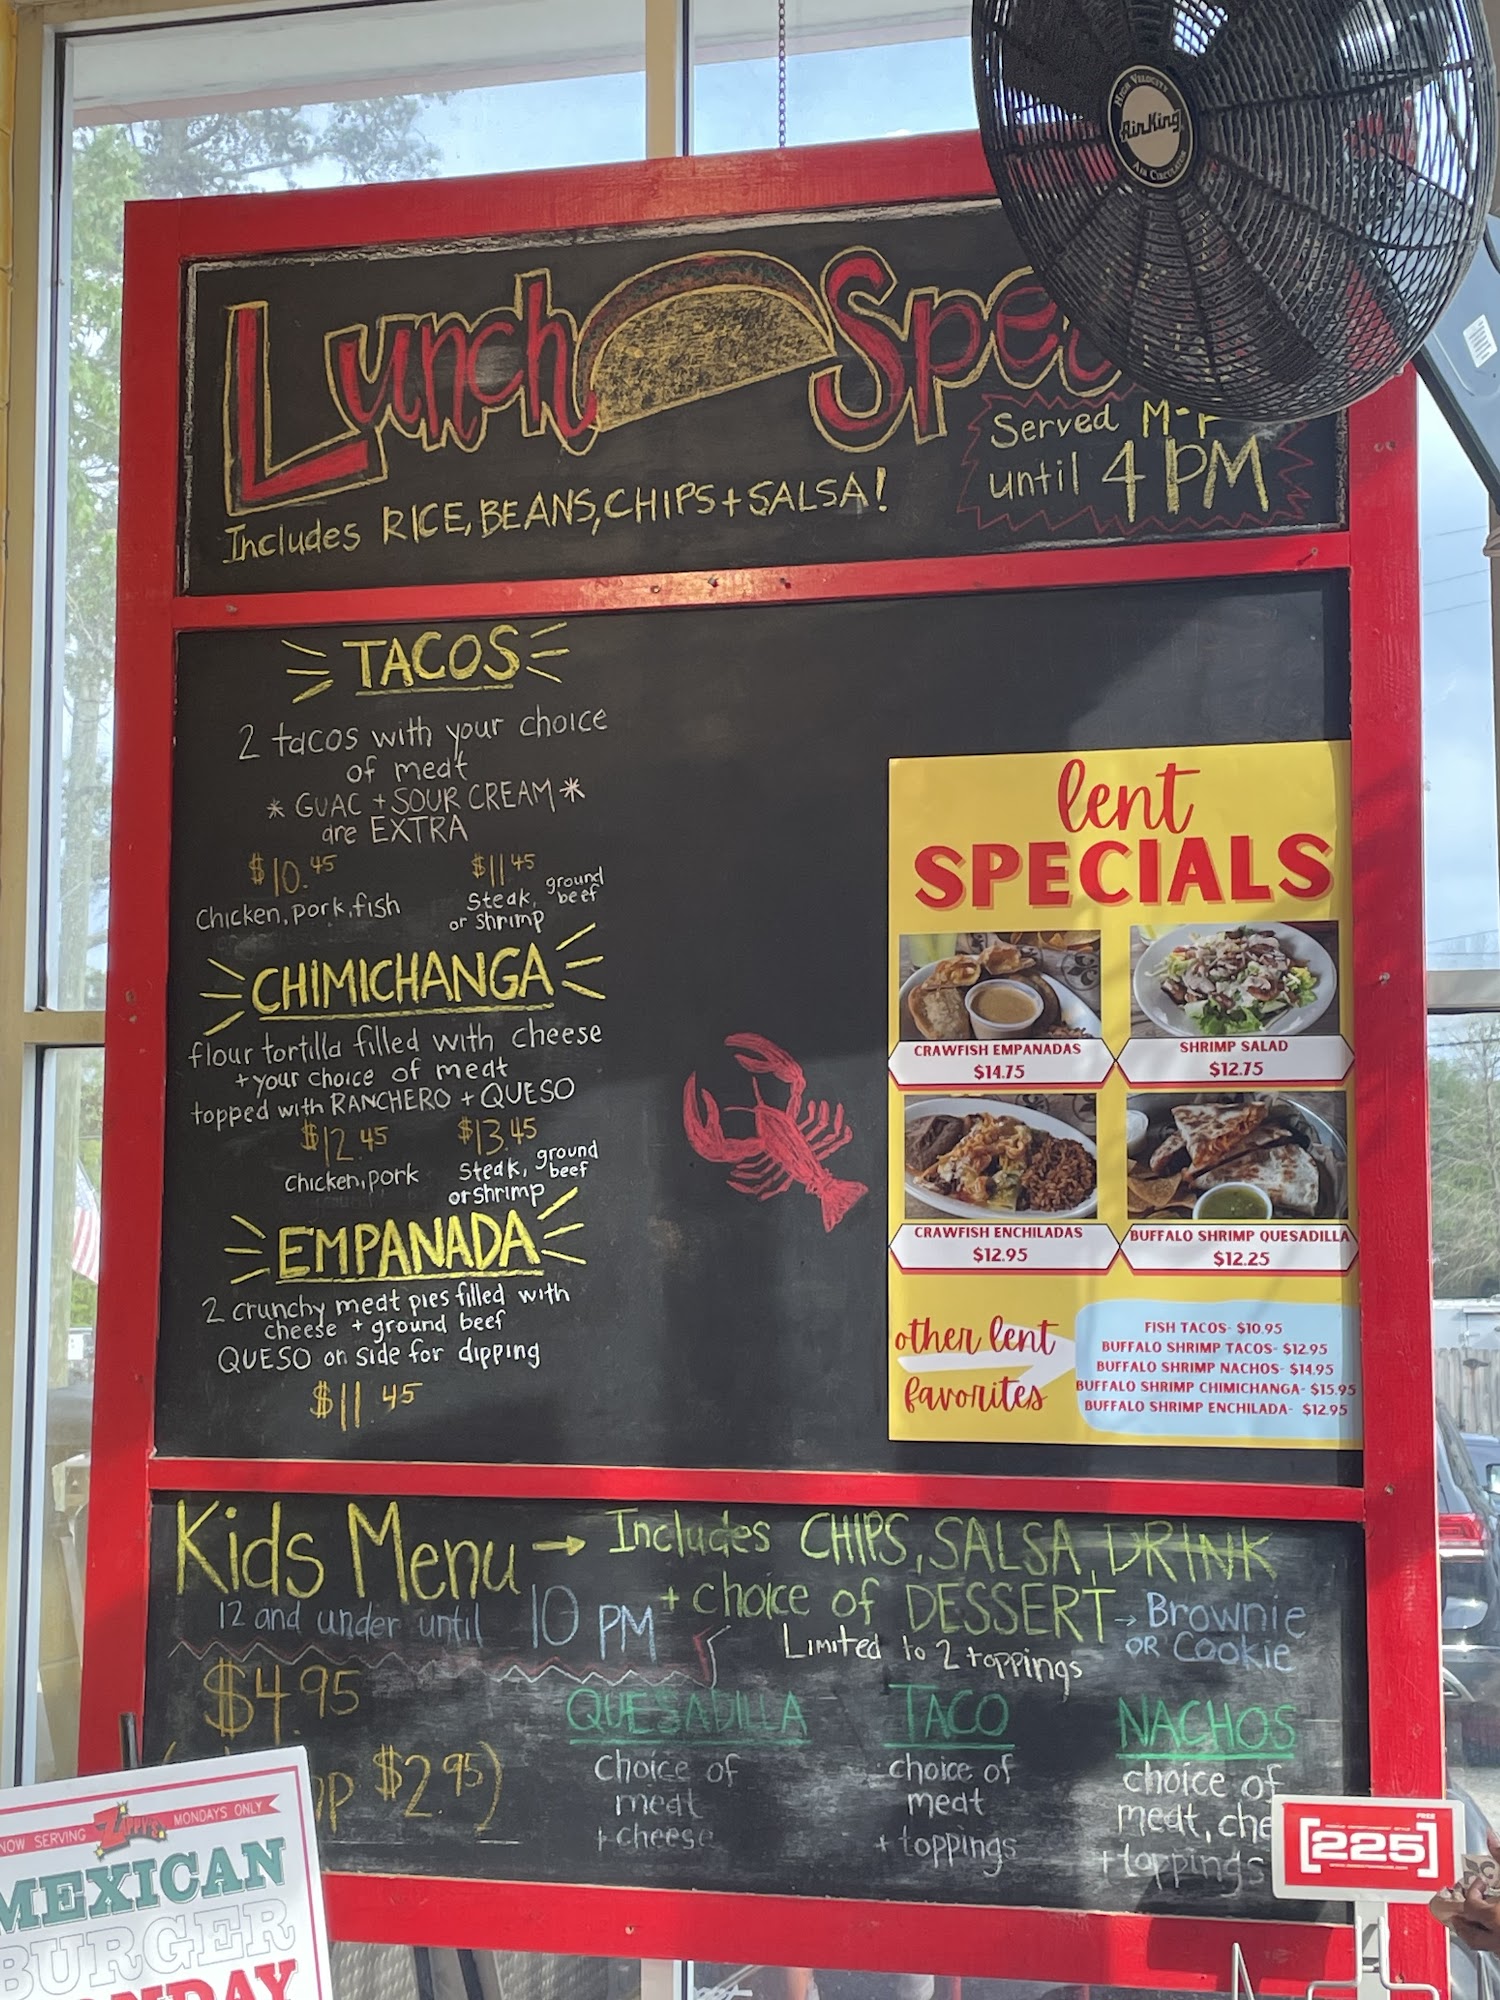 HIGH VELOCITY
AirKing
AIR CIRCULATOR
Lunch
Served
until 4 PM
Includes RICE, BEANS, CHIPS + SALSA!
TACOS
2 tacos with your choice
of meat
* GUAC + SOUR CREAM *
are EXTRA
$10.45
Chicken, pork, fish
$11.45
Steak, ground beef
or shrimp
CHIMICHANGA
flour tortilla filled with cheese
+ your choice of meat
topped with RANCHERO + QUESO
$12.45
chicken, pork
$13.45
Steak, ground beef
or shrimp
EMPANADA
2 crunchy meat pies filled with
cheese + ground beef
QUESO on side for dipping
$11.45
lent
SPECIALS
CRAWFISH EMPANADAS
$14.75
SHRIMP SALAD
$12.75
CRAWFISH ENCHILADAS
$12.95
BUFFALO SHRIMP QUESADILLA
$12.25
other lent
favorites
FISH TACOS- $10.95
BUFFALO SHRIMP TACOS- $12.95
BUFFALO SHRIMP NACHOS- $14.95
BUFFALO SHRIMP CHIMICHANGA- $15.95
BUFFALO SHRIMP ENCHILADA- $12.95
Kids Menu → Includes CHIPS, SALSA, DRINK
+ choice of DESSERT → Brownie
OR Cookie
12 and under until 10 PM
Limited to 2 toppings
$4.95
$2.95)
QUESADILLA
choice of
meat
+ cheese
TACO
choice of
meat
+ toppings
NACHOS
choice of
meat,
+ toppings
NOW SERVING ZIPPY'S MONDAYS ONLY
MEXICAN
BURGER
FREE
[225]